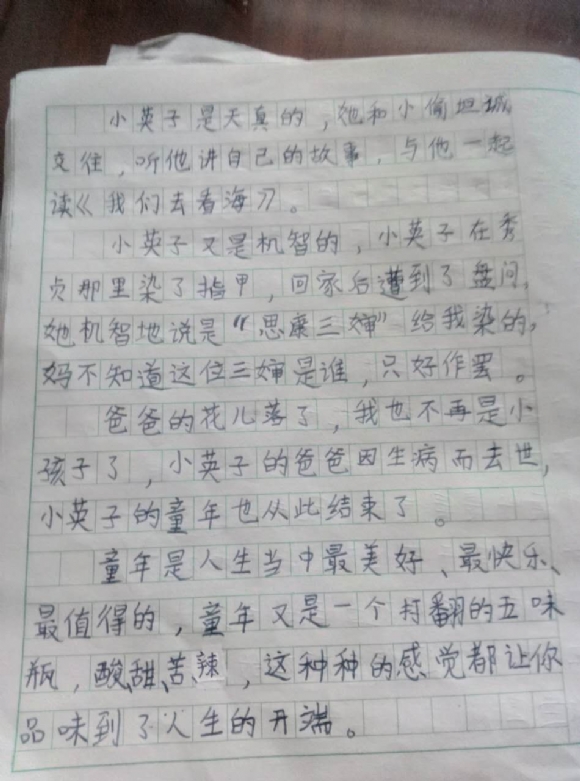 小英子是天真的，她和小偷坦诚
交往，听他讲自己的故事，与他一起
读《我们去看海》。
小英子又是机智的，小英子在秀
贞那里染了指甲，回家后遭到了盘问，
她机智地说是“思康三婶”给我染的，
妈不知道这位三婶是谁，只好作罢。
爸爸的花儿落了，我也不再是小
孩子了，小英子的爸爸因生病而去世，
小英子的童年也从此结束了。
童年是人生当中最美好、最快乐、
最值得的，童年又是一个打翻的五味
瓶，酸、甜、苦、辣，这种种的感觉都让你
品味到了人生的开端。